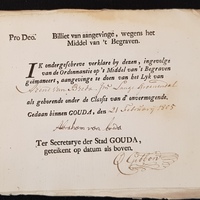 Pro Deo.
Billiet van aangevinge, wegens het
Middel van 't Begraven.
IK ondergeschreve verklare by dezen, ingevolge
van de Ordonnantie op 't Middel van 't Begraven
geëmaneert, aangevinge te doen van het Lyk van
als gehorende onder de Classis van d' onvermogende.
Gedaan binnen GOUDA, den 21 February 1805
Abraham van
Ter Secretarye der Stad GOUDA,
geteikent op datum als boven.